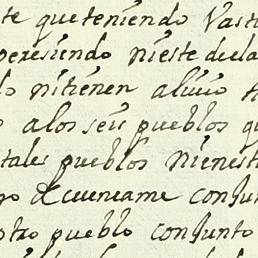 te que teniendo Vast
peresiendo nieste decla
lo nitienen alivio
o alos seis pueblos q
tales pueblos nienest
conjun
otro pueblo conjunto